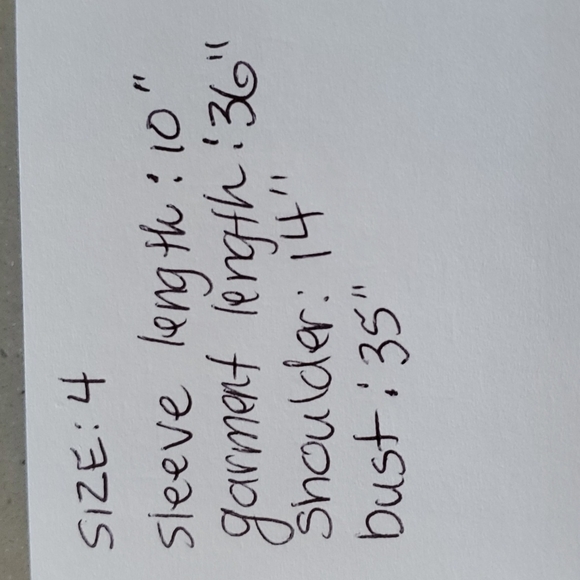 SIZE: 4
sleeve length: 10"
garment length: 36"
shoulder: 14"
bust: 35"